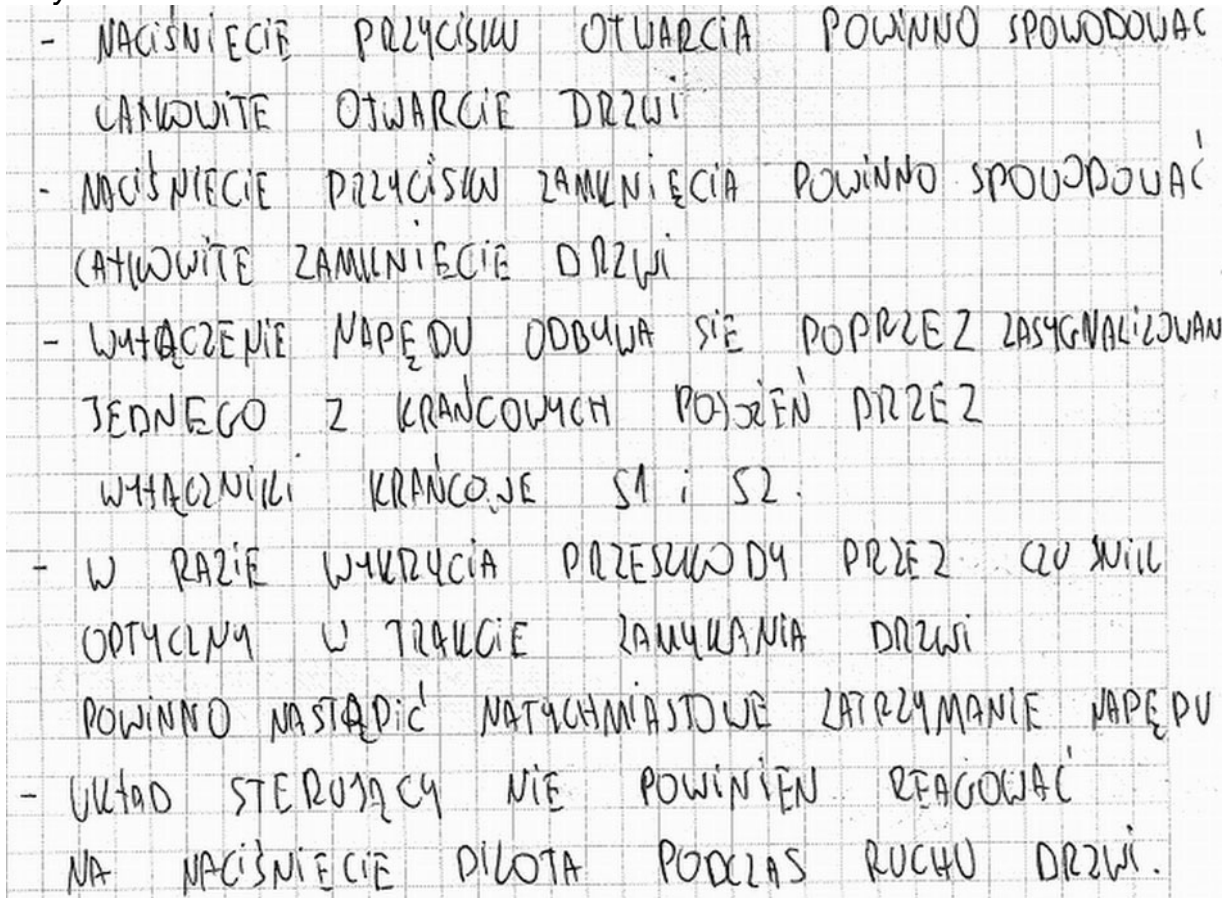 - NACIŚNIĘCIE PRZYCISKU OTWARCIA POWINNO SPOWODOWAĆ
CAŁKOWITE OTWARCIE DRZWI
- NACIŚNIĘCIE PRZYCISKU ZAMKNIĘCIA POWINNO SPOWODOWAĆ
CAŁKOWITE ZAMKNIĘCIE DRZWI
- WYŁĄCZENIE NAPĘDU ODBYWA SIĘ POPRZEZ ZASYGNALIZOWAN
JEDNEGO Z KRAŃCOWYCH POŁOŻEŃ PRZEZ
WYŁĄCZNIKI KRAŃCOWE S1 i S2.
- W RAZIE WYKRYCIA PRZESZKODY PRZEZ CZUJNIK
OPTYCZNY W TRAKCIE ZAMYKANIA DRZWI
POWINNO NASTĄPIĆ NATYCHMIASTOWE ZATRZYMANIE NAPĘDU
- UKŁAD STERUJĄCY NIE POWINIEN REAGOWAĆ
NA NACIŚNIĘCIE PILOTA PODCZAS RUCHU DRZWI.